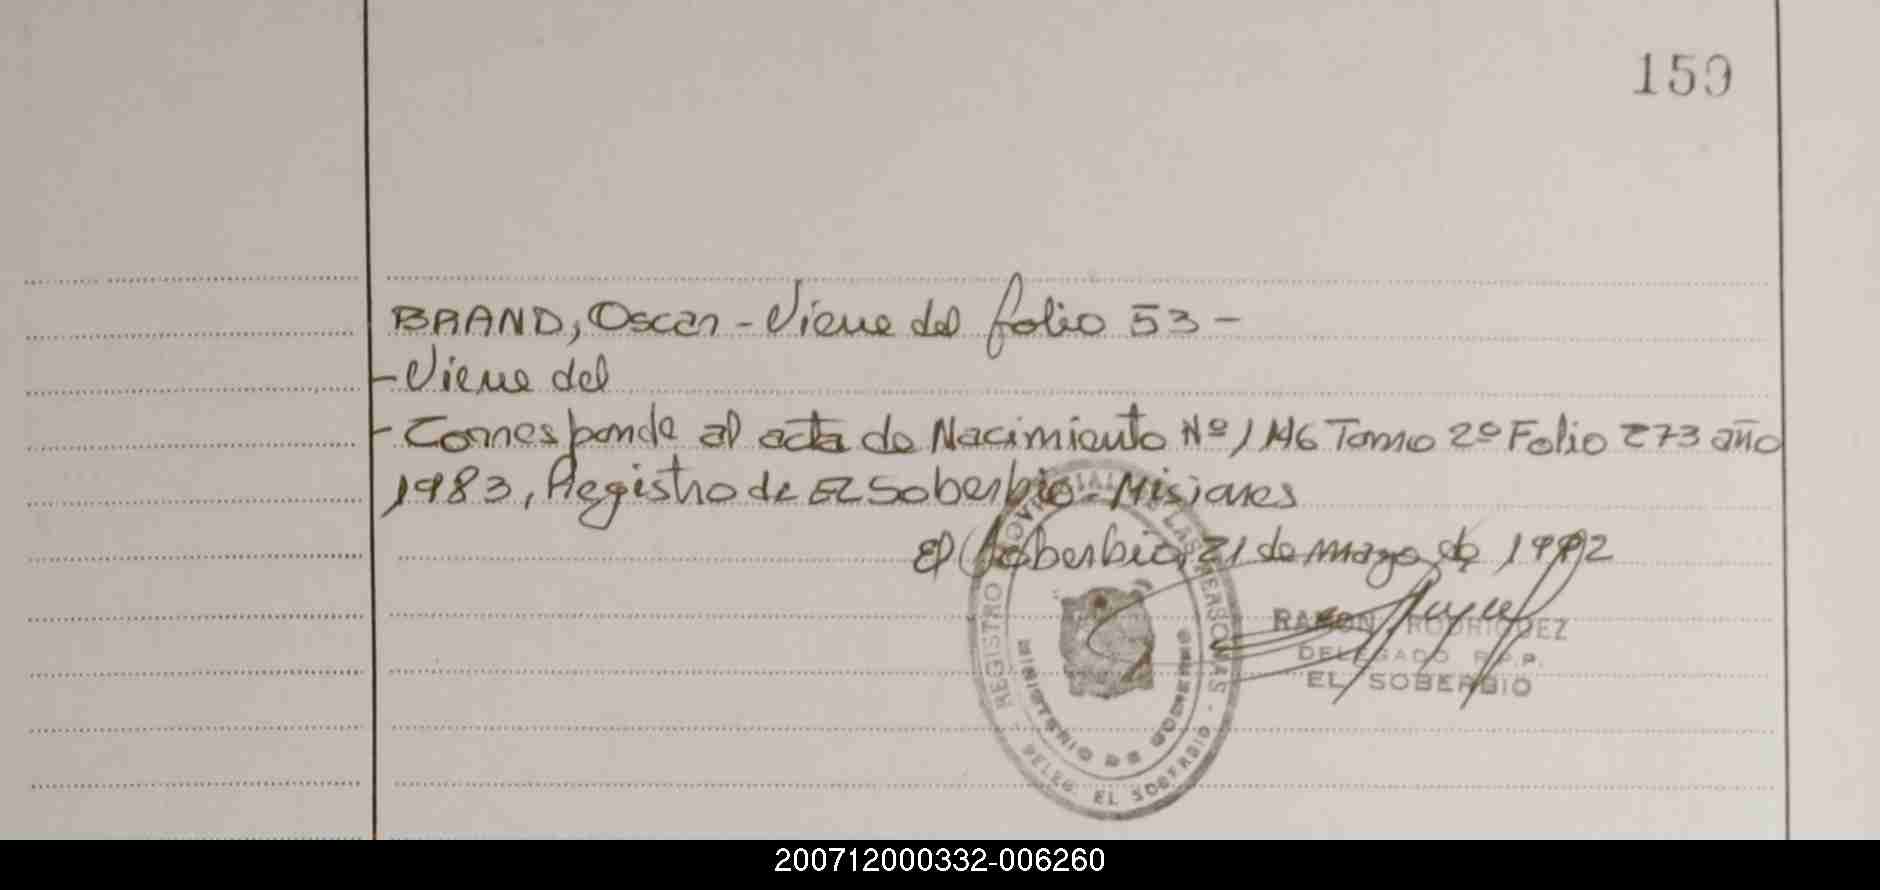 159
BRAND, Oscar - Viene del folio 53 -
- Viene del
- Corresponde al acta de Nacimiento Nº 1,146 Tomo 2º Folio 273 año
1983, Registro de El Soberbio - Misiones
El Soberbio, 21 de mayo de 1992
RAMON RODRIGUEZ
DELEGADO R.P.P.
EL SOBERBIO
REGISTRO PROVINCIAL DE LAS PERSONAS - DELEG. EL SOBERBIO -
MINISTERIO DE GOBIERNO
200712000332-006260